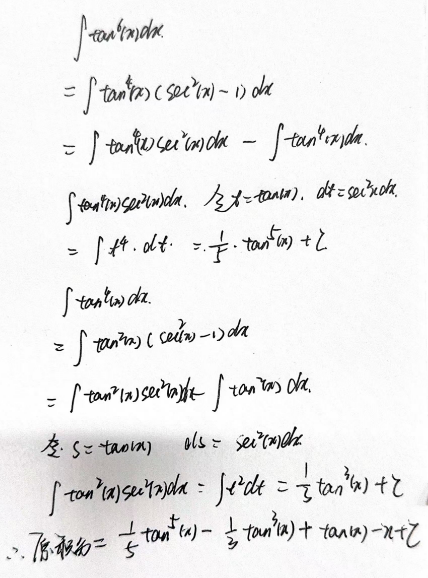 ∫tan⁶(x)dx.
= ∫tan⁴(x)(sec²(x)-1)dx
= ∫tan⁴(x)sec²(x)dx - ∫tan⁴(x)dx.
∫tan⁴(x)sec²(x)dx. 令t=tan(x). dt=sec²xdx.
= ∫t⁴·dt. = 1/5·tan⁵(x)+C
∫tan⁴(x)dx.
= ∫tan²(x)(sec²(x)-1)dx
= ∫tan²(x)sec²(x)dx - ∫tan²(x)dx.
令 S=tan(x) ds=sec²(x)dx
∫tan²(x)sec²(x)dx = ∫t²dt = 1/3tan³(x)+C
∴原积分= 1/5tan⁵(x) - 1/3tan³(x)+tan(x)-x+C